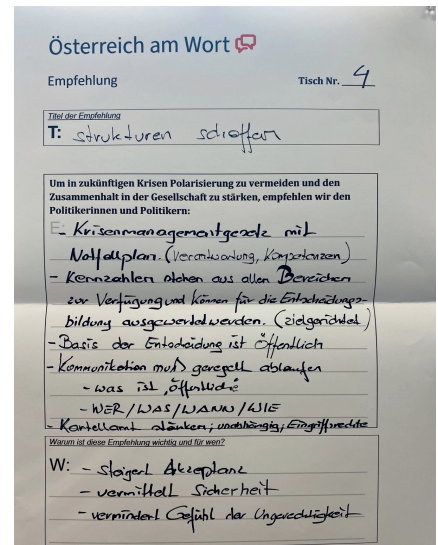 Österreich am Wort
Empfehlung
Tisch Nr. 4
Titel der Empfehlung
T: strukturen schaffen
Um in zukünftigen Krisen Polarisierung zu vermeiden und den
Zusammenhalt in der Gesellschaft zu stärken, empfehlen wir den
Politikerinnen und Politikern:
E: - Krisenmanagementgesetz mit
Notfallplan. (Verantwortung, Kompetenzen)
- Kennzahlen stehen aus allen Bereichen
zur Verfügung und können für die Entscheidungs-
bildung ausgewertet werden. (zielgerichtet)
- Basis der Entscheidung ist öffentlich
- Kommunikation muß geregelt ablaufen
- was ist "öffentliche
- WER/WAS/WANN/WIE
- Kartellamt stärken; unabhängig; Eingriffsrechte
Warum ist diese Empfehlung wichtig und für wen?
W: - steigert Akzeptanz
- vermittelt Sicherheit
- vermindert Gefühl der Ungerechtigkeit